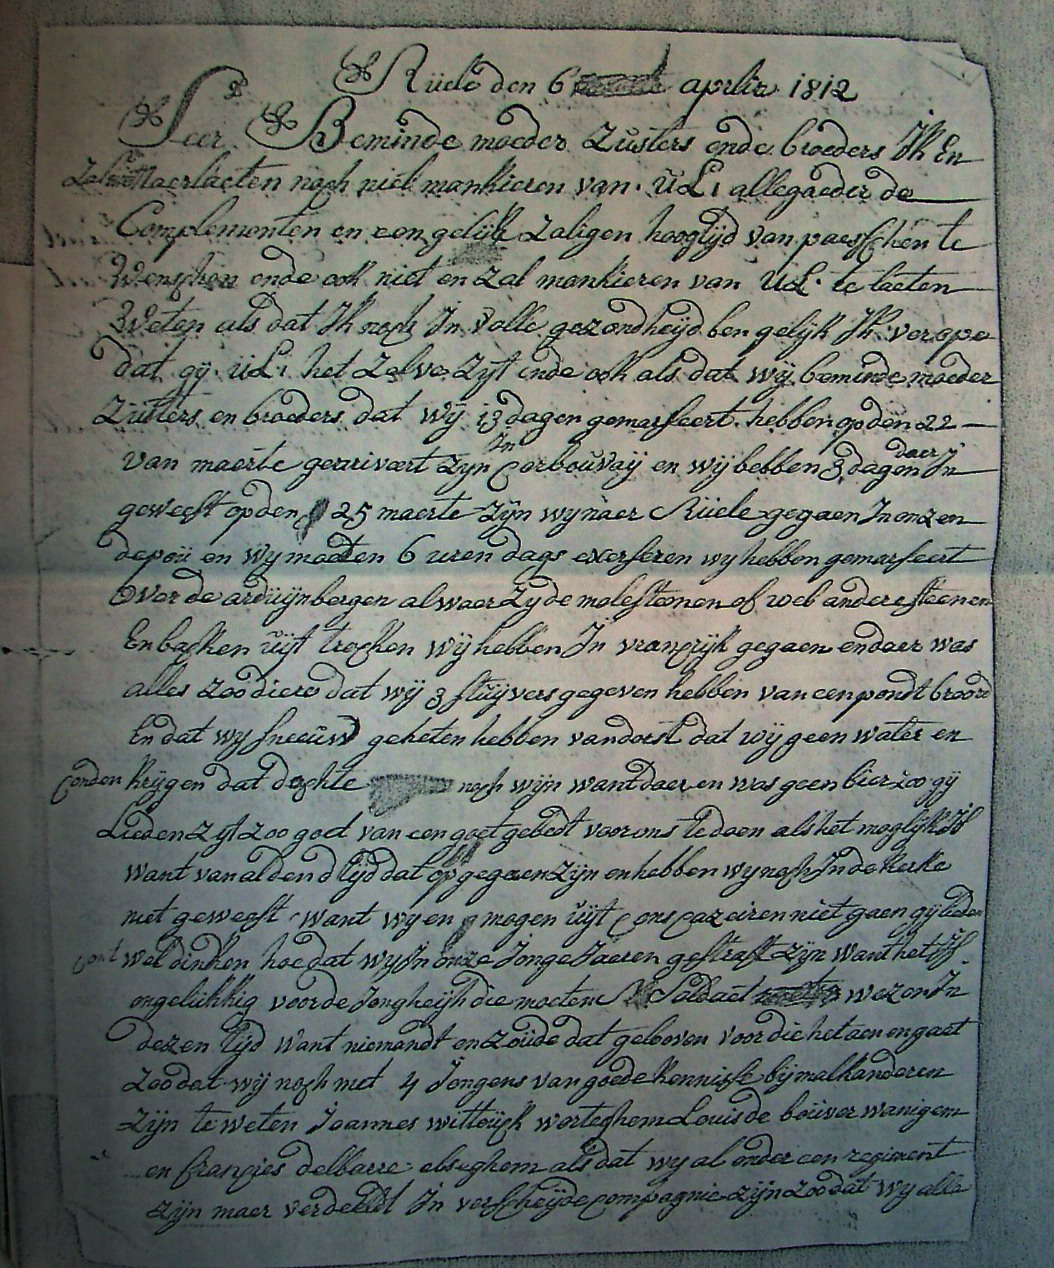 Rüele den 6 aprilis 1812
Seer Beminde moeder Züsters ende broeders Ik En
Zal naerlaeten noch niet mankieren van ÜLi allegaeder de
Complementen en een gelijk zaligen hoogtijd van paesschen te
Wenschen ende ook niet en zal mankieren van ULi te laeten
Weten als dat Ik noch In volle gezondheijd ben gelijk Ik verope
dat gij üLi het zelve zijt ende ook als dat wij beminde moeder
Züsters en broeders dat wij 13 dagen gemarseert hebben op den 22
van maerte gearrivaert zijn In Corbouvaij en wij hebben 3 dagen daer In
geweest op den 25 maerte zijn wij naer Rüele gegaen In onzen
depoü en wij moeten 6 uren daegs exerseren wij hebben gemarseert
Over de arduijnbergen alwaer zij de molesteenen of wel andere steenen
En backen üijt trocken wij hebben In vrancrijk gegaen en daer was
alles zoo diere dat wij 3 stüijvers gegeven hebben van een pondt broodt
En dat wij sneeuw geheten hebben van dorst dat wij geen water en
Conden krijgen dat dochte noch wijn want daer en was geen bier zoo gij
Lieden zijt zoo goet van een goet gebedt voor ons te doen als het moglijk Is
want van al den dtijd dat op gegaen zijn en hebben wij noch In de kerke
niet geweest want wij en mogen üijt ons cazeiren niet gaen gij lieden
cont wel dinken hoe dat wij In onze Jonge Jaeren gestraft zijn want het Is
ongelükkig voor de Jongheijd die moeten Soldaet wezen In
dezen tijd want niemandt en zoüde dat gelooven voor die het aen en gaet
zoo dat wij noch met 4 Jongens van goede kennisse bij malkanderen
zijn te weten Joannes wittoück worteghem Louis de boüver wanigem
en franjies delbarre elseghem als dat wij al onder een regiment
zijn maer verdeeldt In verscheijde compagnie zijn zoo dat wij alle